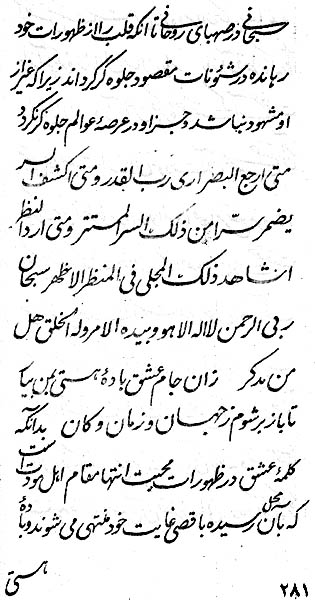 سبحانی در صهبای روحانی تا آنکه قلب را از ظهورات خود
رهانده در شئونات مقصود جلوه گر گرداند زیرا که غیر از
او مشهود نباشد و جز او در عرصهٔ عوالم جلوه گر نگردد
متی ارجع البصر اری رب القدر و متی اکشف السر
یضمر سرا من ذلک السر المستتر و متی ارد النظر
انشاهد ذلک المجلی فی المنظر الاظهر سبحان
ربی الرحمن لا اله الا هو و بیده الامر و له الخلق هل
من مدکر زان جام عشق بادهٔ هستی بمن بیا
تا باز بر شوم ز جهان و زمان و کان بدانکه
کلمهٔ عشق در ظهورات محبت انتها مقام اهل مودت است
که بآن محل رسیده باقصی غایت خود منتهی می شوند و بادهٔ
هستی
۲۸۱